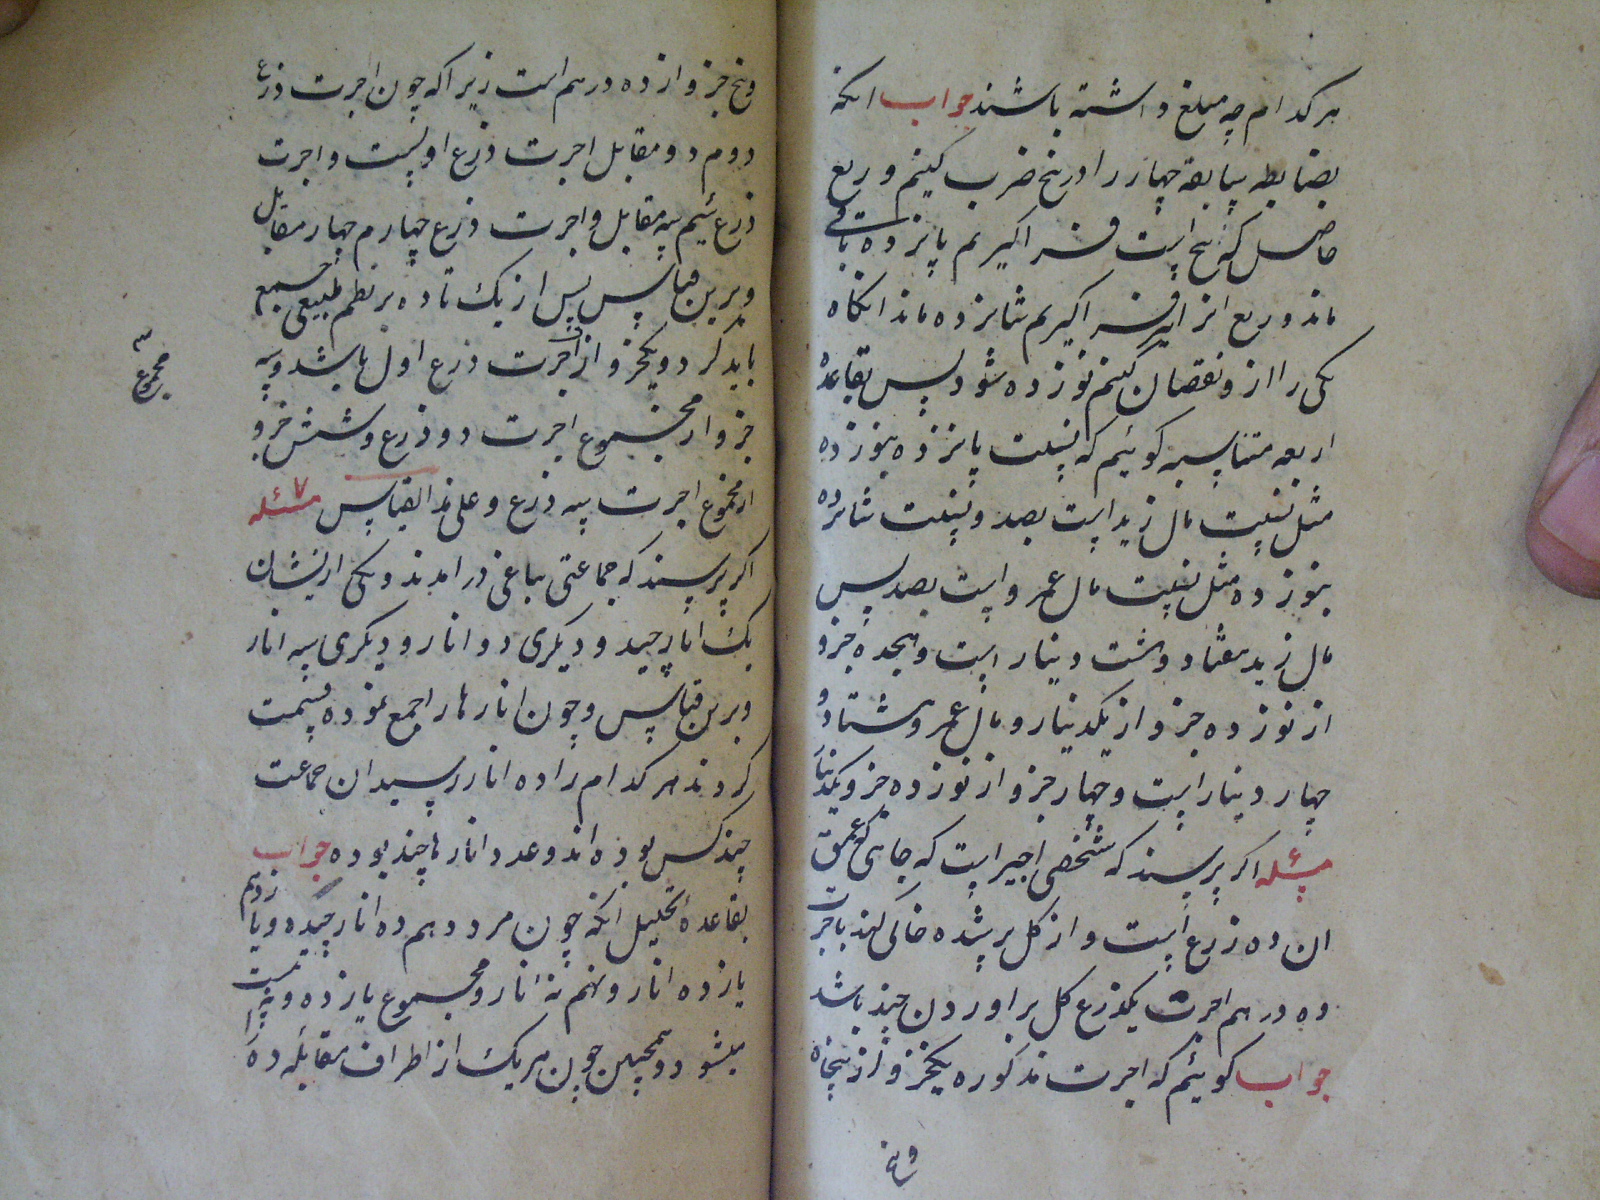 هرکدام چه مبلغ داشته باشند جواب انکه
بضابطه سابقه چهار را در پنج ضرب کنیم و ربع
حاصل که پنج است فراکیریم پانزده باقی
ماند و ربع انرا فراکیریم شانزده ماند انکاه
یکی را از و نقصان کنیم نوزده شود پس بقاعدهٔ
اربعه متناسبه کوئیم که نسبت پانزده بنوزده
مثل نسبت مال زید است بصد و نسبت شانزده
بنوزده مثل نسبت مال عمرو است بصد پس
مال زید هفتاد و هشت دینار است و هجده جزو
از نوزده جزو از یکدینار و مال عمرو هشتاد و
چهار دینار است و چهار جزو از نوزده جزو یکدینار
مسئله اکر پرسند که شخصی اجیر است که چاهی که عمق
ان ده ذرع است و از کل پر شده خالی کند باجرت
ده درهم اجرت یکذرع کل براوردن چند باشد
جواب کوئیم که اجرت مذکوره یکجزو از پنجاه
و پنج
و پنج جزو از ده درهم است زیرا که چون اجرت ذرع
دوم دو مقابل اجرت ذرع اولست و اجرت
ذرع سیم سه مقابل و اجرت ذرع چهارم چهار مقابل
و برین قیاس پس از یک تا ده بر نظم طبیعی جمع
باید کرد و یکجزو از ان اجرت ذرع اول باشد و سه
جزو از مجموع اجرت دو ذرع و شش جزو
از مجموع اجرت سه ذرع و علی هذا القیاس مسئله ۷
اکر پرسند که جماعتی بباغی درامدند و یکی از ایشان
یک انار چید و دیکری دو انار و دیکری سه انار
و برین قیاس و چون انارها را جمع نموده قسمت
کردند هر کدام را ده انار رسید ان جماعت
چند کس بوده اند و عدد انارها چند بوده جواب
بقاعدهٔ تحلیل انکه چون مرد دهم ده انار چیده و یازدهم
یازده انار و نهم نه انار و مجموع یازده و نه بیست
میشود و همچنین چون هر یک از اطراف مقابله ده را
مجموع